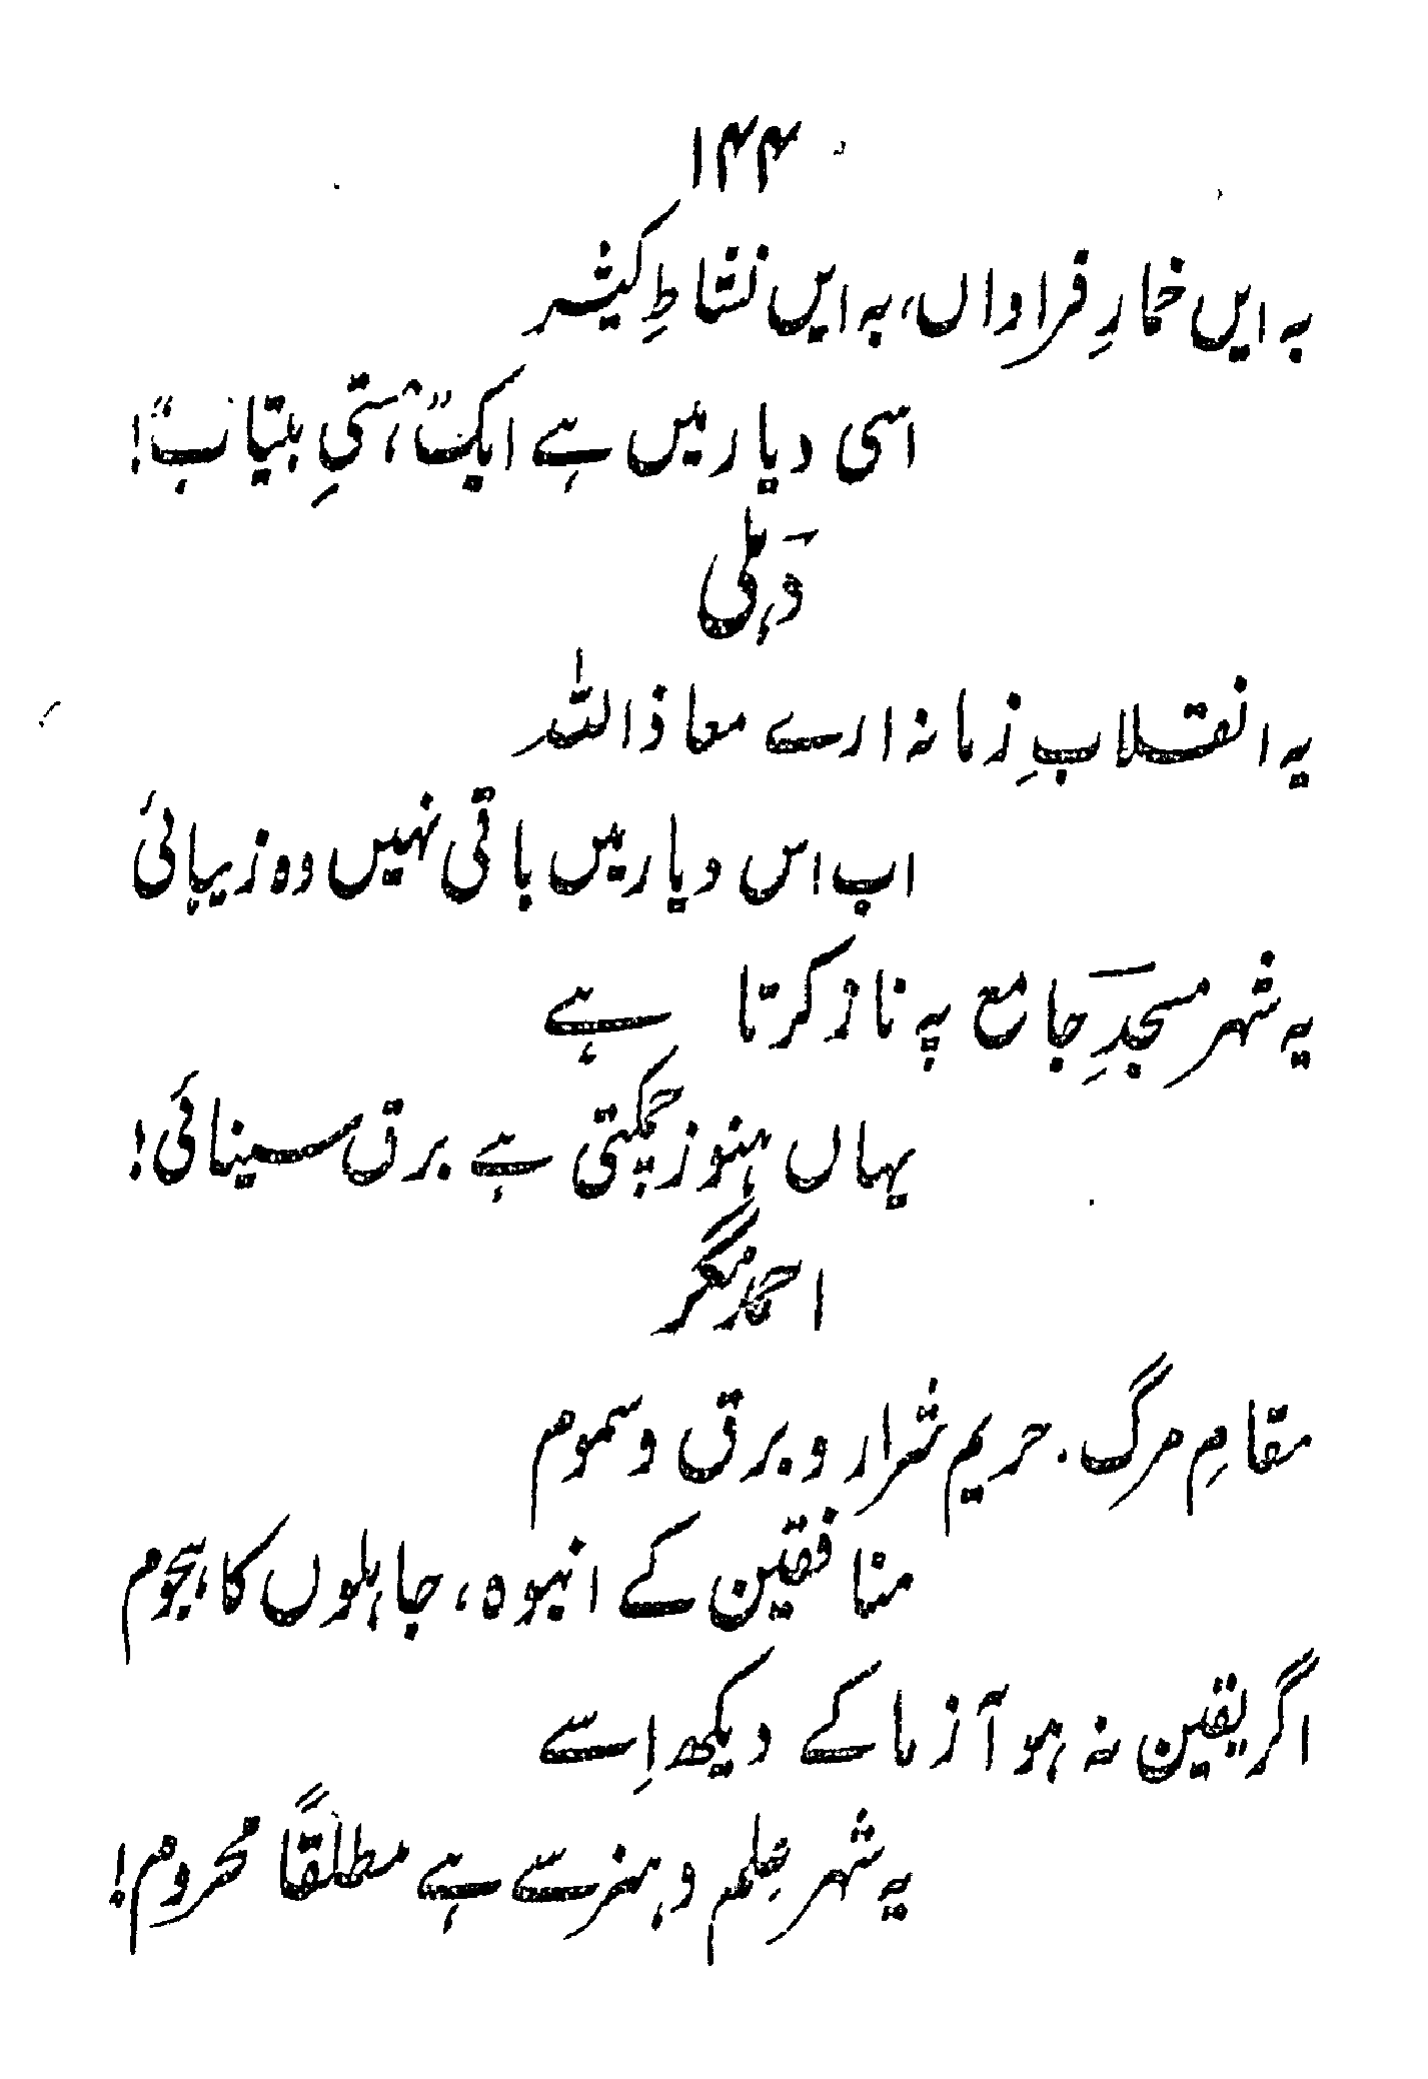 ۱۴۴
بہ ایں خمارِ فراواں، بہ ایں نشاطِ کثیر
اسی دیار میں ہے ایک "ہستیِ بیتاب"!
دہلی
یہ انقلابِ زمانہ ارے معاذ اللہ
اب اس دیار میں باقی نہیں وہ زیبائی
یہ شہر مسجدِ جامع پہ ناز کرتا ہے
یہاں ہنوز چمکتی ہے برق سینائی!
احمد نگر
مقامِ مرگ، حریم شرار و برق و سموم
منافقین کے انبوہ، جاہلوں کا ہجوم
اگر یقین نہ ہو آزما کے دیکھ اِسے
یہ شہر عِلم و ہنر سے ہے مطلقاً محروم!